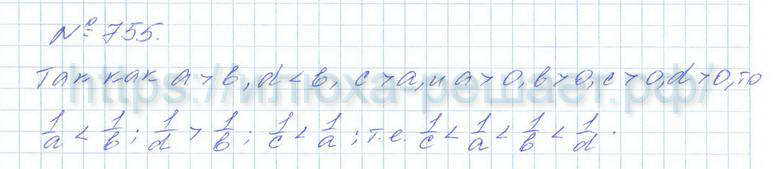 № 755.
Так как a > b, d < b, c > a, и a > 0, b > 0, c > 0, d > 0, то
1/a < 1/b ; 1/d > 1/b ; 1/c < 1/a ; т.е. 1/c < 1/a < 1/b < 1/d .
https://илюха-решает.рф/